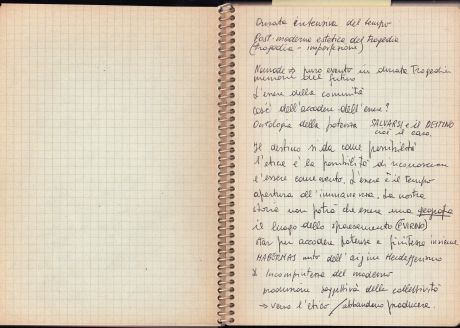 Durata intensiva del tempo
Post-moderna estetica del Tragedia
(tragedia - imperfezione)
puro evento in durata Tragedia
memoria del futuro
L'essere della comunità
Cos'è dell'accadere dell'essere?
Ontologia della potenza SALVARSI e il DESTINO
cioè il caso.
Il destino si dà come possibilità
l'etica è la possibilità di riconoscere
l'essere come evento. L'essere è il tempo
apertura all'
. La nostra
storia non potrà che essere una geografia
il luogo dello spaesamento (
)
star per accadere potenza e finitezza insieme
HABERMAS
dell'
Heideggerismo
* Incompiutezza del moderno
produzione soggettività della collettività
→ verso l'etico / abbandono producere.